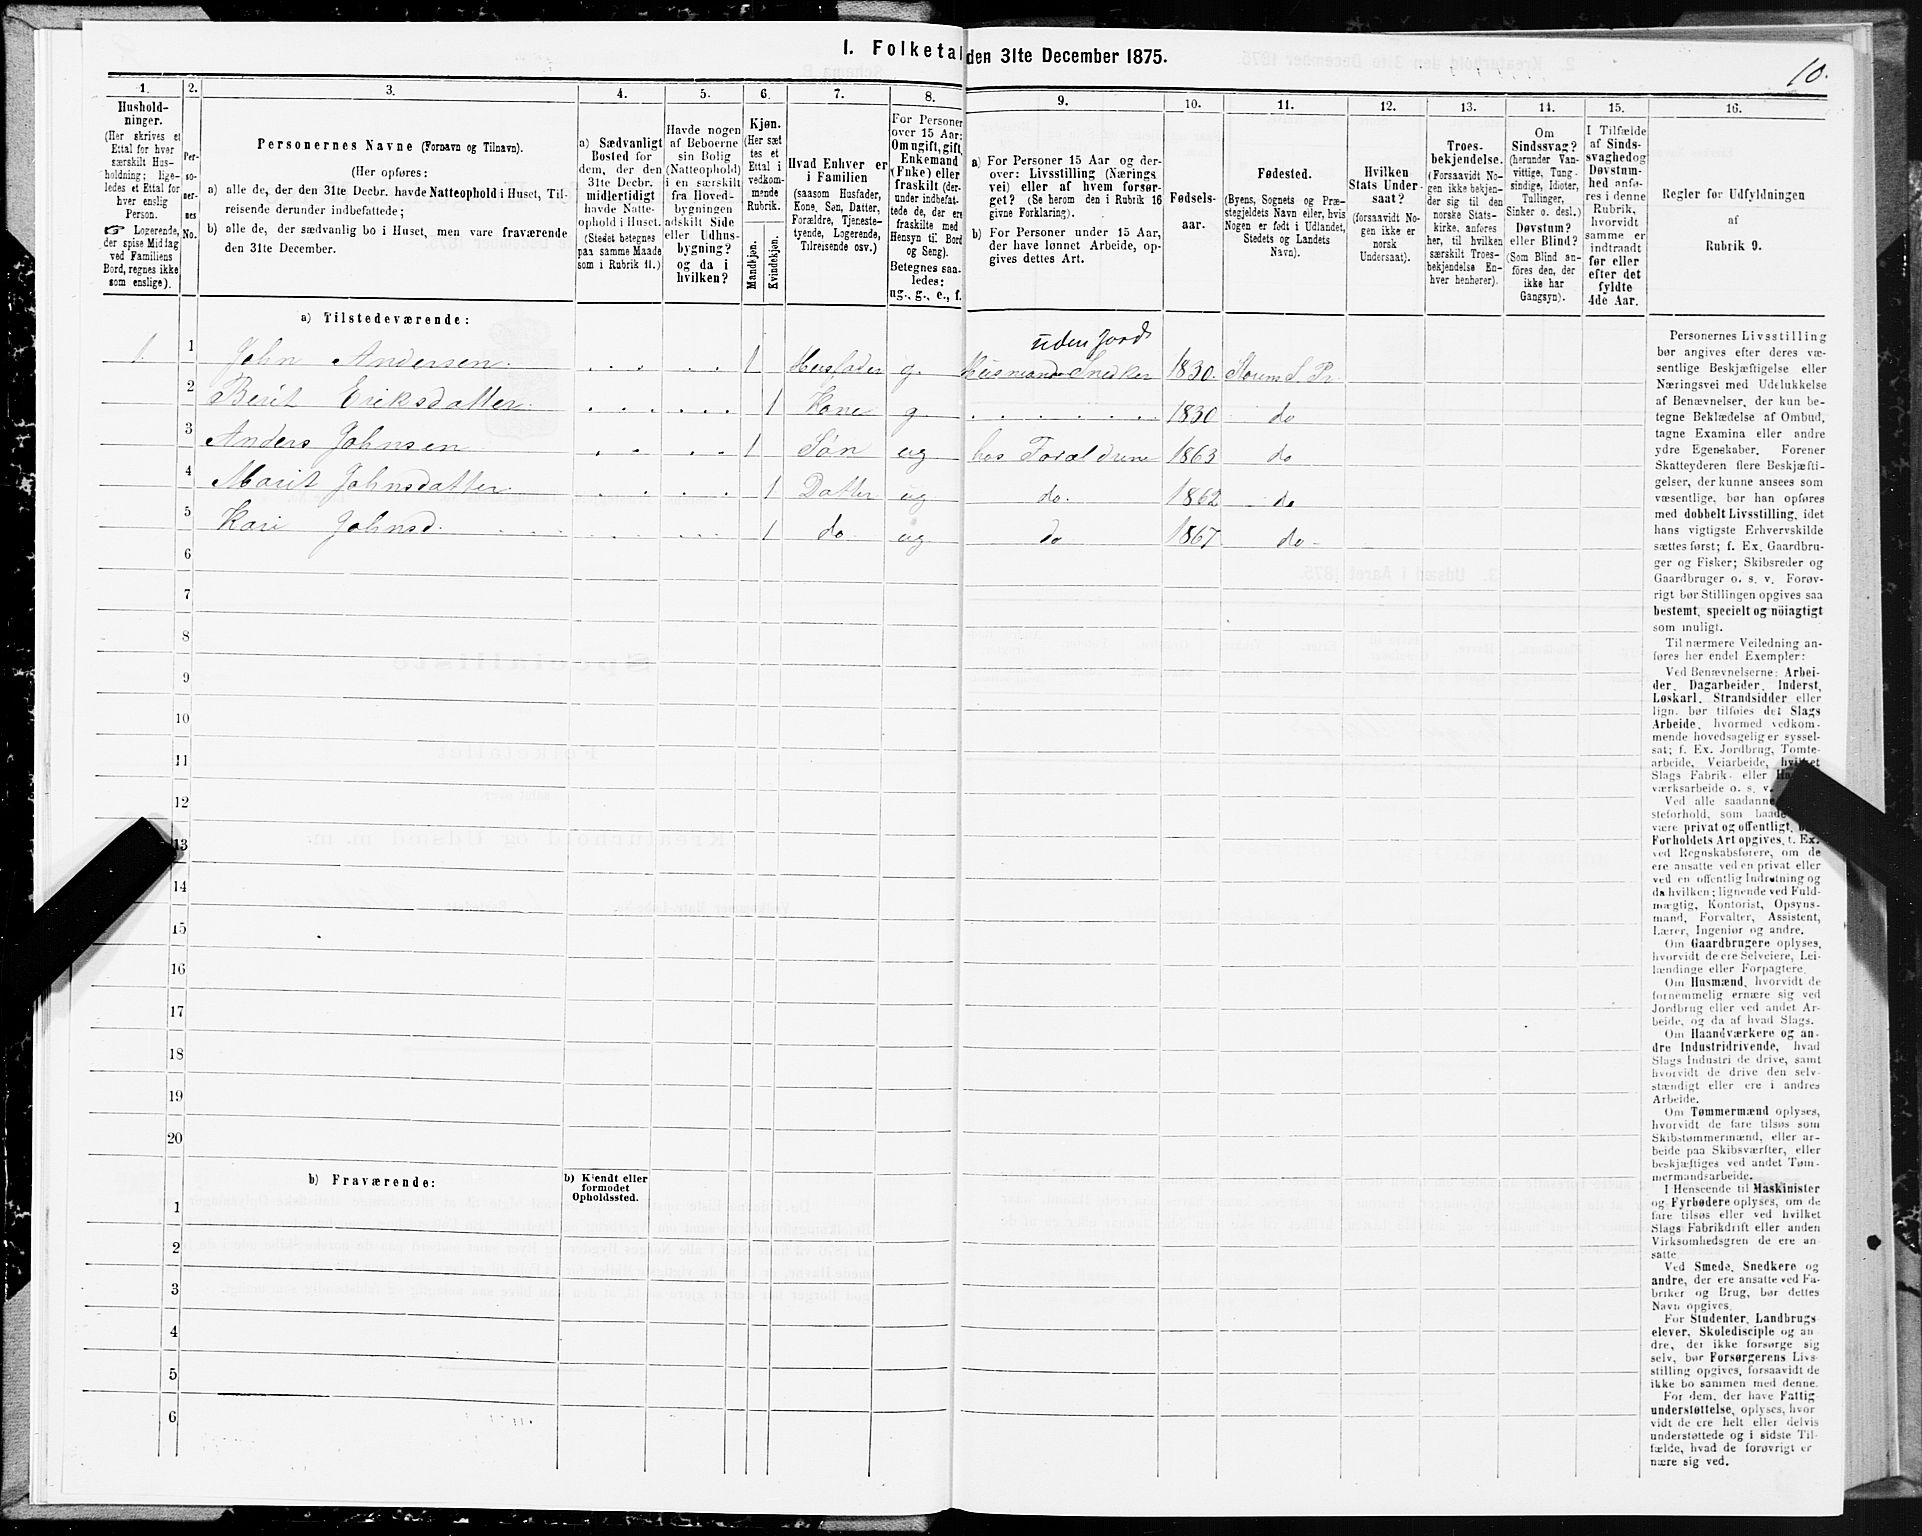 I. Folketal den 31te December 1875.
10.
1.
2.
3.
4.
5.
6.
7.
8.
9.
10.
11.
12.
13.
14.
15.
16.
Hushold-
ninger.
(Her skrives et
Ettal for hver
særskilt Hus-
holdning; lige-
ledes et Ettal for
hver enslig
Person.
☞ Logerende,
der spise Middag
ved Familiens
Bord, regnes ikke
som enslige).
Per-
so-
ner-
nes
No.
Personernes Navne (Fornavn og Tilnavn).
(Her opføres:
a) alle de, der den 31te Decbr. havde Natteophold i Huset, Til-
reisende derunder indbefattede;
b) alle de, der sædvanlig bo i Huset, men vare fraværende
den 31te December.
a) Sædvanligt
Bosted for
dem, der den
31te Decbr.
midlertidigt
havde Natte-
ophold i Huset.
(Stedet betegnes
paa samme Maade
som i Rubrik 11.)
Havde nogen
af Beboerne
sin Bolig
(Natteophold)
i en særskilt
fra Hoved-
bygningen
adskilt Side
eller Udhus-
bygning?
og da i
hvilken?
Kjøn.
(Her sæt
tes et
Ettal i
vedkom-
mende
Rubrik.
Mandkjøn.
Kvindekjøn.
Hvad Enhver er
i Familien
(saasom Husfader,
Kone, Søn, Datter,
Forældre, Tjeneste-
tyende, Logerende,
Tilreisende osv.)
For Personer
over 15 Aar:
Om ugift, gift,
Enkemand
(Enke) eller
fraskilt (der-
under indbefat-
tede de, der ere
fraskilte med
Hensyn til Bord
og Seng).
Betegnes saa-
ledes:
ug., g., e., f.
a) For Personer 15 Aar og der-
over: Livsstilling (Nærings
vei) eller af hvem forsør-
get? (Se herom den i Rubrik 16
givne Forklaring).
b) For Personer under 15 Aar,
der have lønnet Arbeide, op-
gives dettes Art.
Fødsels-
aar.
Fødested.
(Byens, Sognets og Præ-
stegjeldets Navn eller, hvis
Nogen er født i Udlandet,
Stedets og Landets
Navn).
Hvilken
Stats Under-
saat?
(forsaavidt No-
gen ikke er
norsk
Undersaat).
Troes-
bekjendelse.
(Forsaavidt No-
gen ikke bekjen-
der sig til den
norske Stats-
kirke, anføres
her, til hvilken
særskilt Troes-
bekjendelse En-
hver henhører).
Om
Sindssvag?
(herunder Van-
vittige, Tung-
sindige, Idioter,
Tullinger,
Sinker o. desl.)
Døvstum?
eller Blind?
(Som Blind an-
føres den, der
ikke har
Gangsyn).
I Tilfælde
af Sinds-
svaghed og
Døvstum-
hed anfø-
res i denne
Rubrik,
hvorvidt
samme er
indtraadt
før eller
efter det
fyldte
4de Aar.
Regler for Udfyldningen
af
Rubrik 9.
a) Tilstedeværende:
udenJord
1. 1 John Andersen. 1 Husfader g. Husmand Snedker 1830.
2 Berit Eriksdatter. 1 Kone g. 1830 do
3 Anders Johnsen 1 Søn ug hos Forældrene 1863 do
4 Marit Johnsdatter. 1 Datter ug do. 1862 do
5 Kari Johnsd. 1 do. ug do 1867 do
6
7
8
9
10
11
12
13
14
15
16
17
18
19
20
b) Fraværende:
b) Kjendt eller
formodet
Opholdssted.
1
2
3
4
5
6
Personernes Livsstilling
bør angives efter deres væ-
sentlige Beskjæftigelse eller
Næringsvei med Udelukkelse
af Benævnelser, der kun be-
tegne Beklædelse af Ombud,
tagne Examina eller andre
ydre Egenskaber. Forener
Skatteyderen flere Beskjæfti-
gelser, der kunne ansees som
væsentlige, bør han opføres
med dobbelt Livsstilling, idet
hans vigtigste Erhvervskilde
sættes først; f. Ex. Gaardbru-
ger og Fisker; Skibsreder og
Gaardbruger o. s. v. Forøv-
rigt bør Stillingen opgives saa
bestemt, specielt og nöiagtigt
som muligt.
Til nærmere Veiledning an-
føres her endel Exempler:
Ved Benævnelserne: Arbei-
der, Dagarbeider, Inderst,
Løskarl, Strandsidder eller
lign. bør tilføies det Slags
Arbeide, hvormed vedkom-
mende hovedsagelig er syssel-
sat; f. Ex. Jordbrug, Tomte-
arbeide, Veiarbeide, hvilket
Slags Fabrik- eller
værksarbeide o. s. v.
Ved alle saadanne
steforhold, som baade
være privat og offentlig,
Forholdets Art opgives, f. Ex.
ved Regnskabsførere, om de
ere ansatte ved en privat eller
ved en offentlig Indretning og
da hvilken; lignende ved Fuld-
mægtig, Kontorist, Opsyns-
mand, Forvalter, Assistent,
Lærer, Ingeniør og andre.
Om Gaardbrugere oplyses,
hvorvidt de ere Selveiere, Lei-
lændinge eller Forpagtere.
Om Husmænd, hvorvidt de
fornemmelig ernære sig ved
Jordbrug eller ved andet Ar-
beide, og da af hvad Slags.
Om Haandværkere og an-
dre Industridrivende, hvad
Slags Industri de drive, samt
hvorvidt de drive den selv-
stændigt eller ere i andres
Arbeide.
Om Tømmermænd oplyses,
hvorvidt de fare tilsøs som
Skibstømmermænd, eller ar-
beide paa Skibsværfter, eller
beskjæftiges ved andet Tøm-
mermandsarbeide.
I Henseende til Maskinister
og Fyrbødere oplyses, om de
fare tilsøs eller ved hvilket
Slags Fabrikdrift eller anden
Virksomhedsgren de ere an-
satte.
Ved Smede, Snedkere og
andre, der ere ansatte ved Fa-
briker og Brug, bør dettes
Navn opgives.
For Studenter, Landbrugs
elever, Skoledisciple og an
dre, der ikke forsørge sig
selv, bør Forsørgerens Livs-
stilling opgives, forsaavidt de
ikke bo sammen med denne.
For dem, der have Fattig
understøttelse, oplyses, hvor
vidt de ere helt eller delvis
understøttede og i sidste Til-
fælde, hvad de forøvrigt er
nære sig ved.